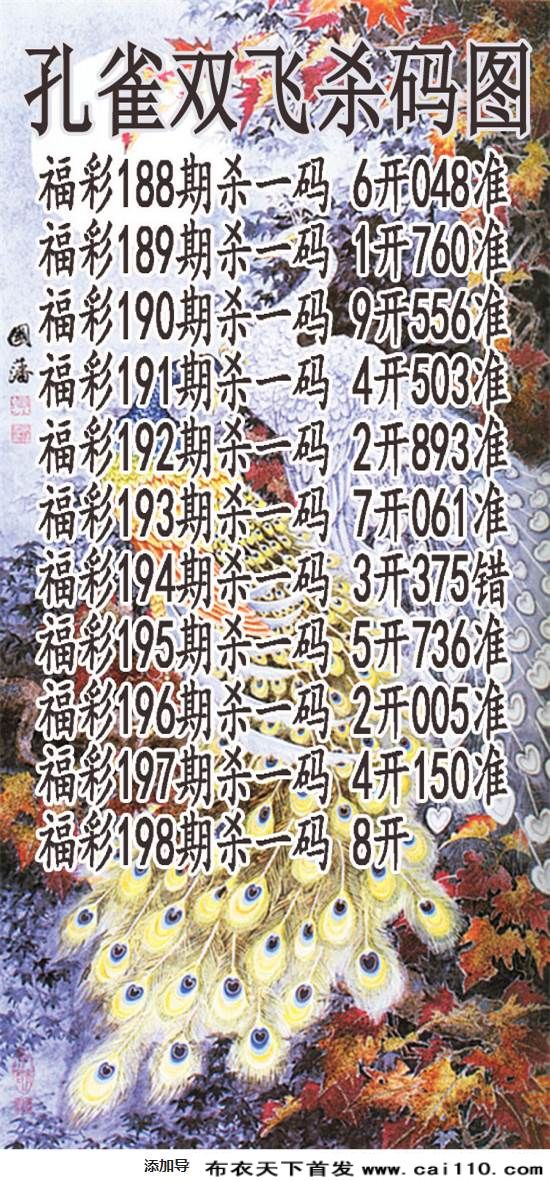 孔雀双飞杀码图
福彩188期杀一码 6开048准
福彩189期杀一码 1开760准
福彩190期杀一码 9开556准
福彩191期杀一码 4开503准
福彩192期杀一码 2开893准
福彩193期杀一码 7开061准
福彩194期杀一码 3开375错
福彩195期杀一码 5开736准
福彩196期杀一码 2开005准
福彩197期杀一码 4开150准
福彩198期杀一码 8开
國藩
添加导 布衣天下首发 www.cai110.com